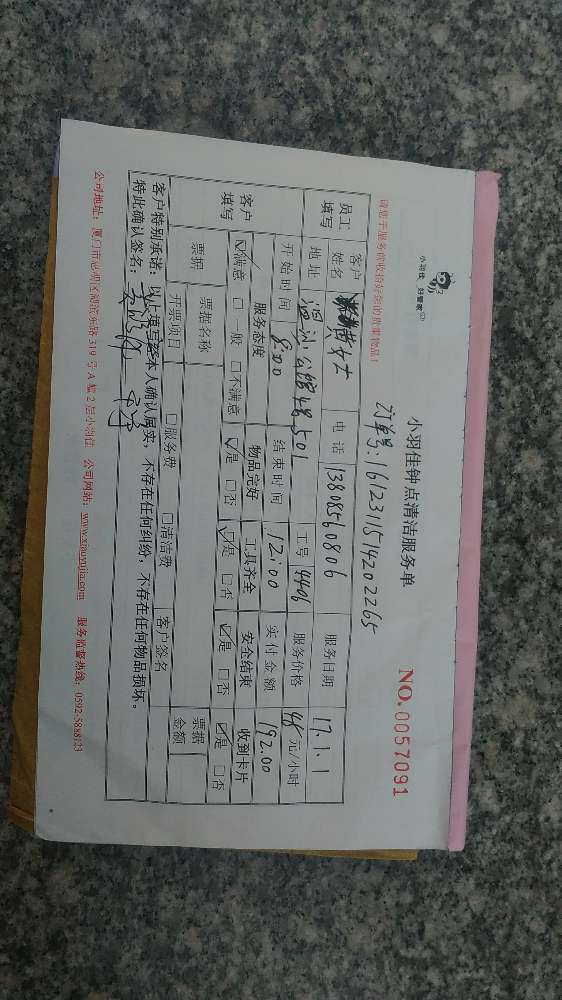 小羽佳 好管家
小羽佳钟点清洁服务单
NO.0057091
请您于服务前收捡好您的贵重物品!
订单号:1612311514202265
员工填写 客户姓名 黄女士 电话 13808560806 服务日期 17.1.1
地址 4号501 工号 4406 服务价格 48元/小时
开始时间 8:00 结束时间 12:00 实付金额 192.00
客户填写 服务态度 物品完好 工具齐全 安全结束 收到卡片
☑满意 □一般 □不满意 ☑是 □否 ☑是 □否 ☑是 □否 ☑是 □否
票据 票据名称 票据金额
开票项目 □服务费 □清洁费 客户签名
客户特别承诺:以上填写经本人确认属实,不存在任何纠纷,不存在任何物品损坏。
特此确认签名:
公司地址:厦门市思明区湖滨东路319号A幢2层小羽佳 公司网站:www.xiaoyujia.com 服务监督热线:0592-5888123